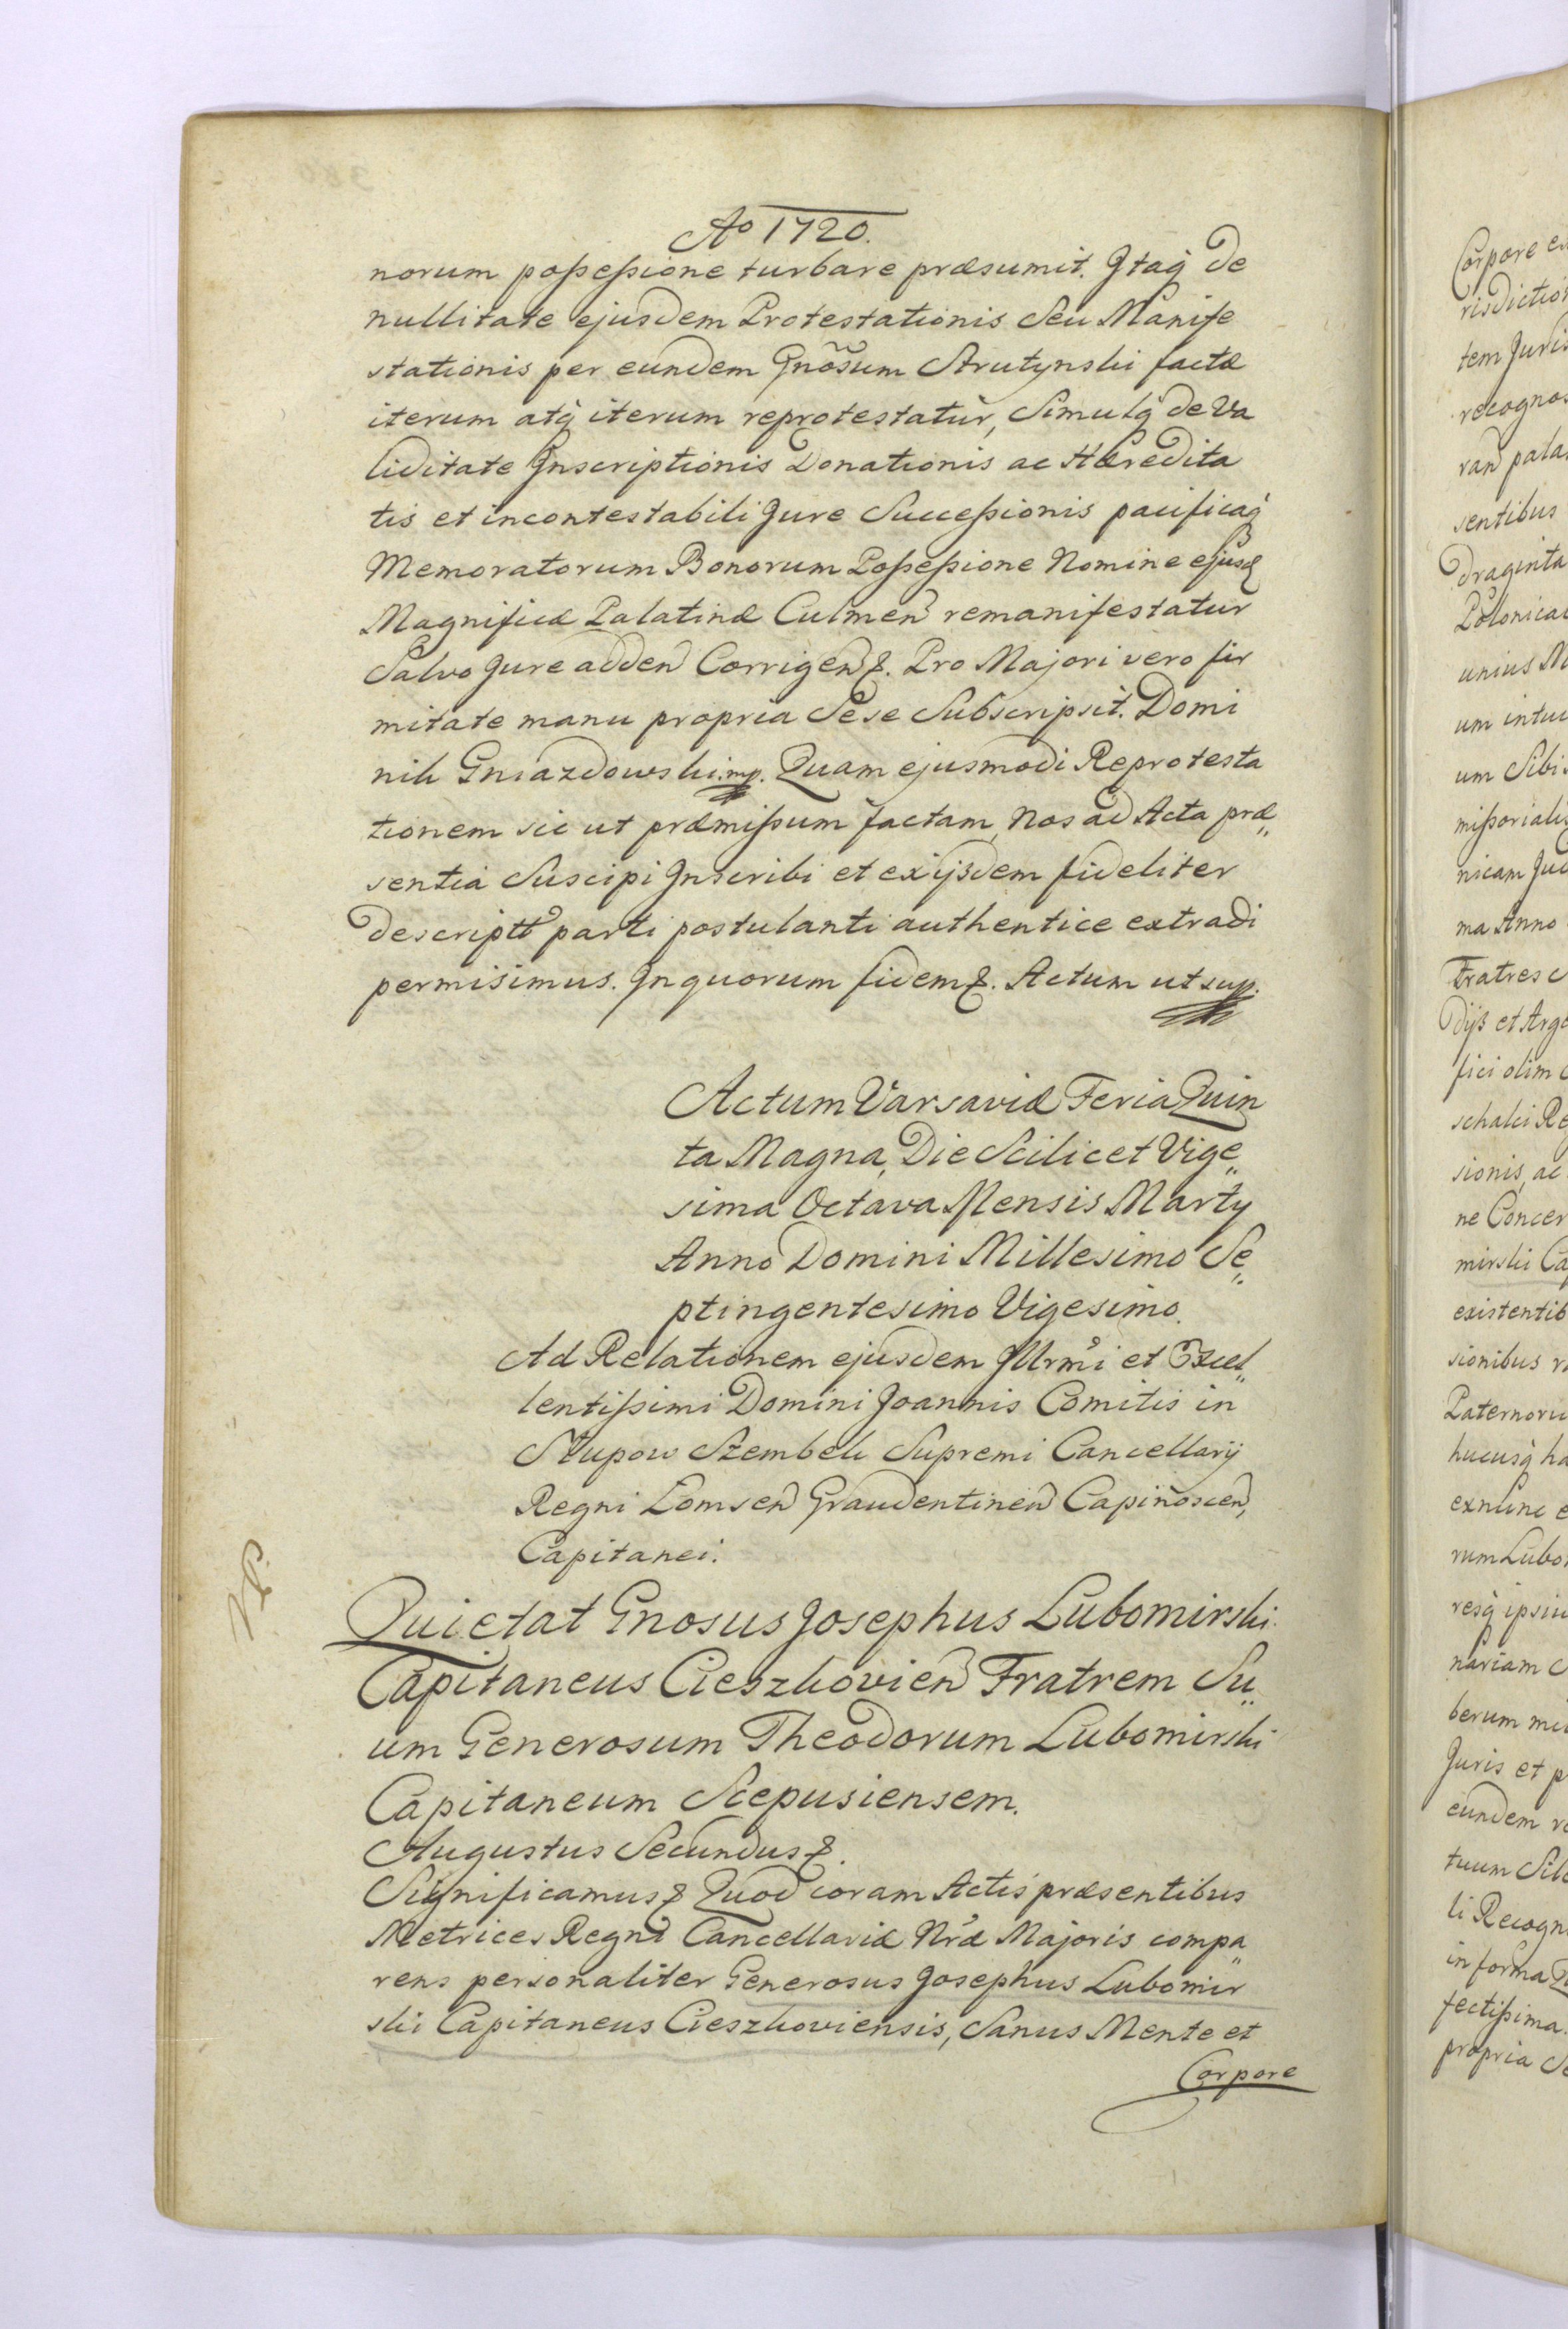 Ao 1720.
norum possessione turbare præsumit. Itaq de
nullitate ejusdem Protestationis Seu Manife
stationis per eundem Gnõsum Strutynski factæ
iterum atq iterum reprotestatur, Simulq de Va
liditate Inscriptionis Donationis ac Hæredita
tis et incontestabili Jure Successionis pacificaq
Memoratorum Bonorum Possessione Nomine ejusd
Magnificæ Palatinæ Culmen remanifestatur
Salvo Jure adden Corrigen &. Pro Majori vero fir
mitate manu propria Sese Subscripsit. Domi
nik Gniazdowski mp. Quam ejusmodi Reprotesta
tionem sic ut præmissum factam, Nos ad Acta præ„
sentia Suscipi Inscribi et ex ijsdem fideliter
descriptt parti postulanti authentice extradi
permisimus. In quorum fidem &. Actum ut sup.
Actum Varsaviæ Feria Quin
ta Magna, Die Scilicet Vige„
sima Octava Mensis Martij
Anno Domini Millesimo Se„
ptingentesimo Vigesimo.
Ad Relationem ejusdem Illrmi et Excel„
lentissimi Domini Joannis Comitis in
Słupow Szembek Supremi Cancellarij
Regni Lomsen Graudentinen Capinoscen,
Capitanei.
Quietat Gnosus Josephus Lubomirski
Capitaneus Cieszkovien Fratrem Su„
um Generosum Theodorum Lubomirski
Capitaneum Scepusiensem.
Augustus Secundus &.
Significamus & Quod coram Actis præsentibus
Metrices Regni Cancellariæ Nræ Majoris compa„
rens personaliter Generosus Josephus Lubomir
ski Capitaneus Cieszkoviensis, Sanus Mente et
Corpore
Corpore
tem
recognos
sentibus
draginta
Polonica
unius
um
um Sibi
ma Anno
Fratres
fici olim
sionis, ac
ne Concer
existentib
sionibus
Paternoru
hucusq ha
exnunc
rum Lubo
resq ipsiu
nariam
berum
Juris et
eundem
tuum
li Recogn
in forma
fectissima
propria